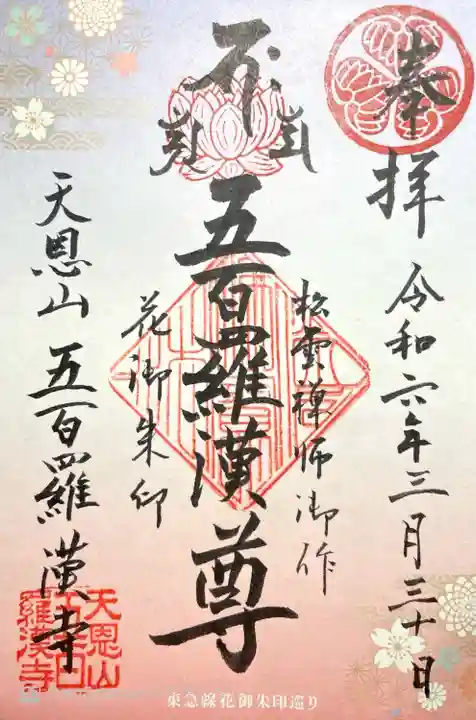 奉拝
令和六年三月三十日
松雲禅師御作
五百羅漢尊
花御朱印
天恩山 五百羅漢寺
天恩山
五百
羅漢寺
東急線花御朱印巡り